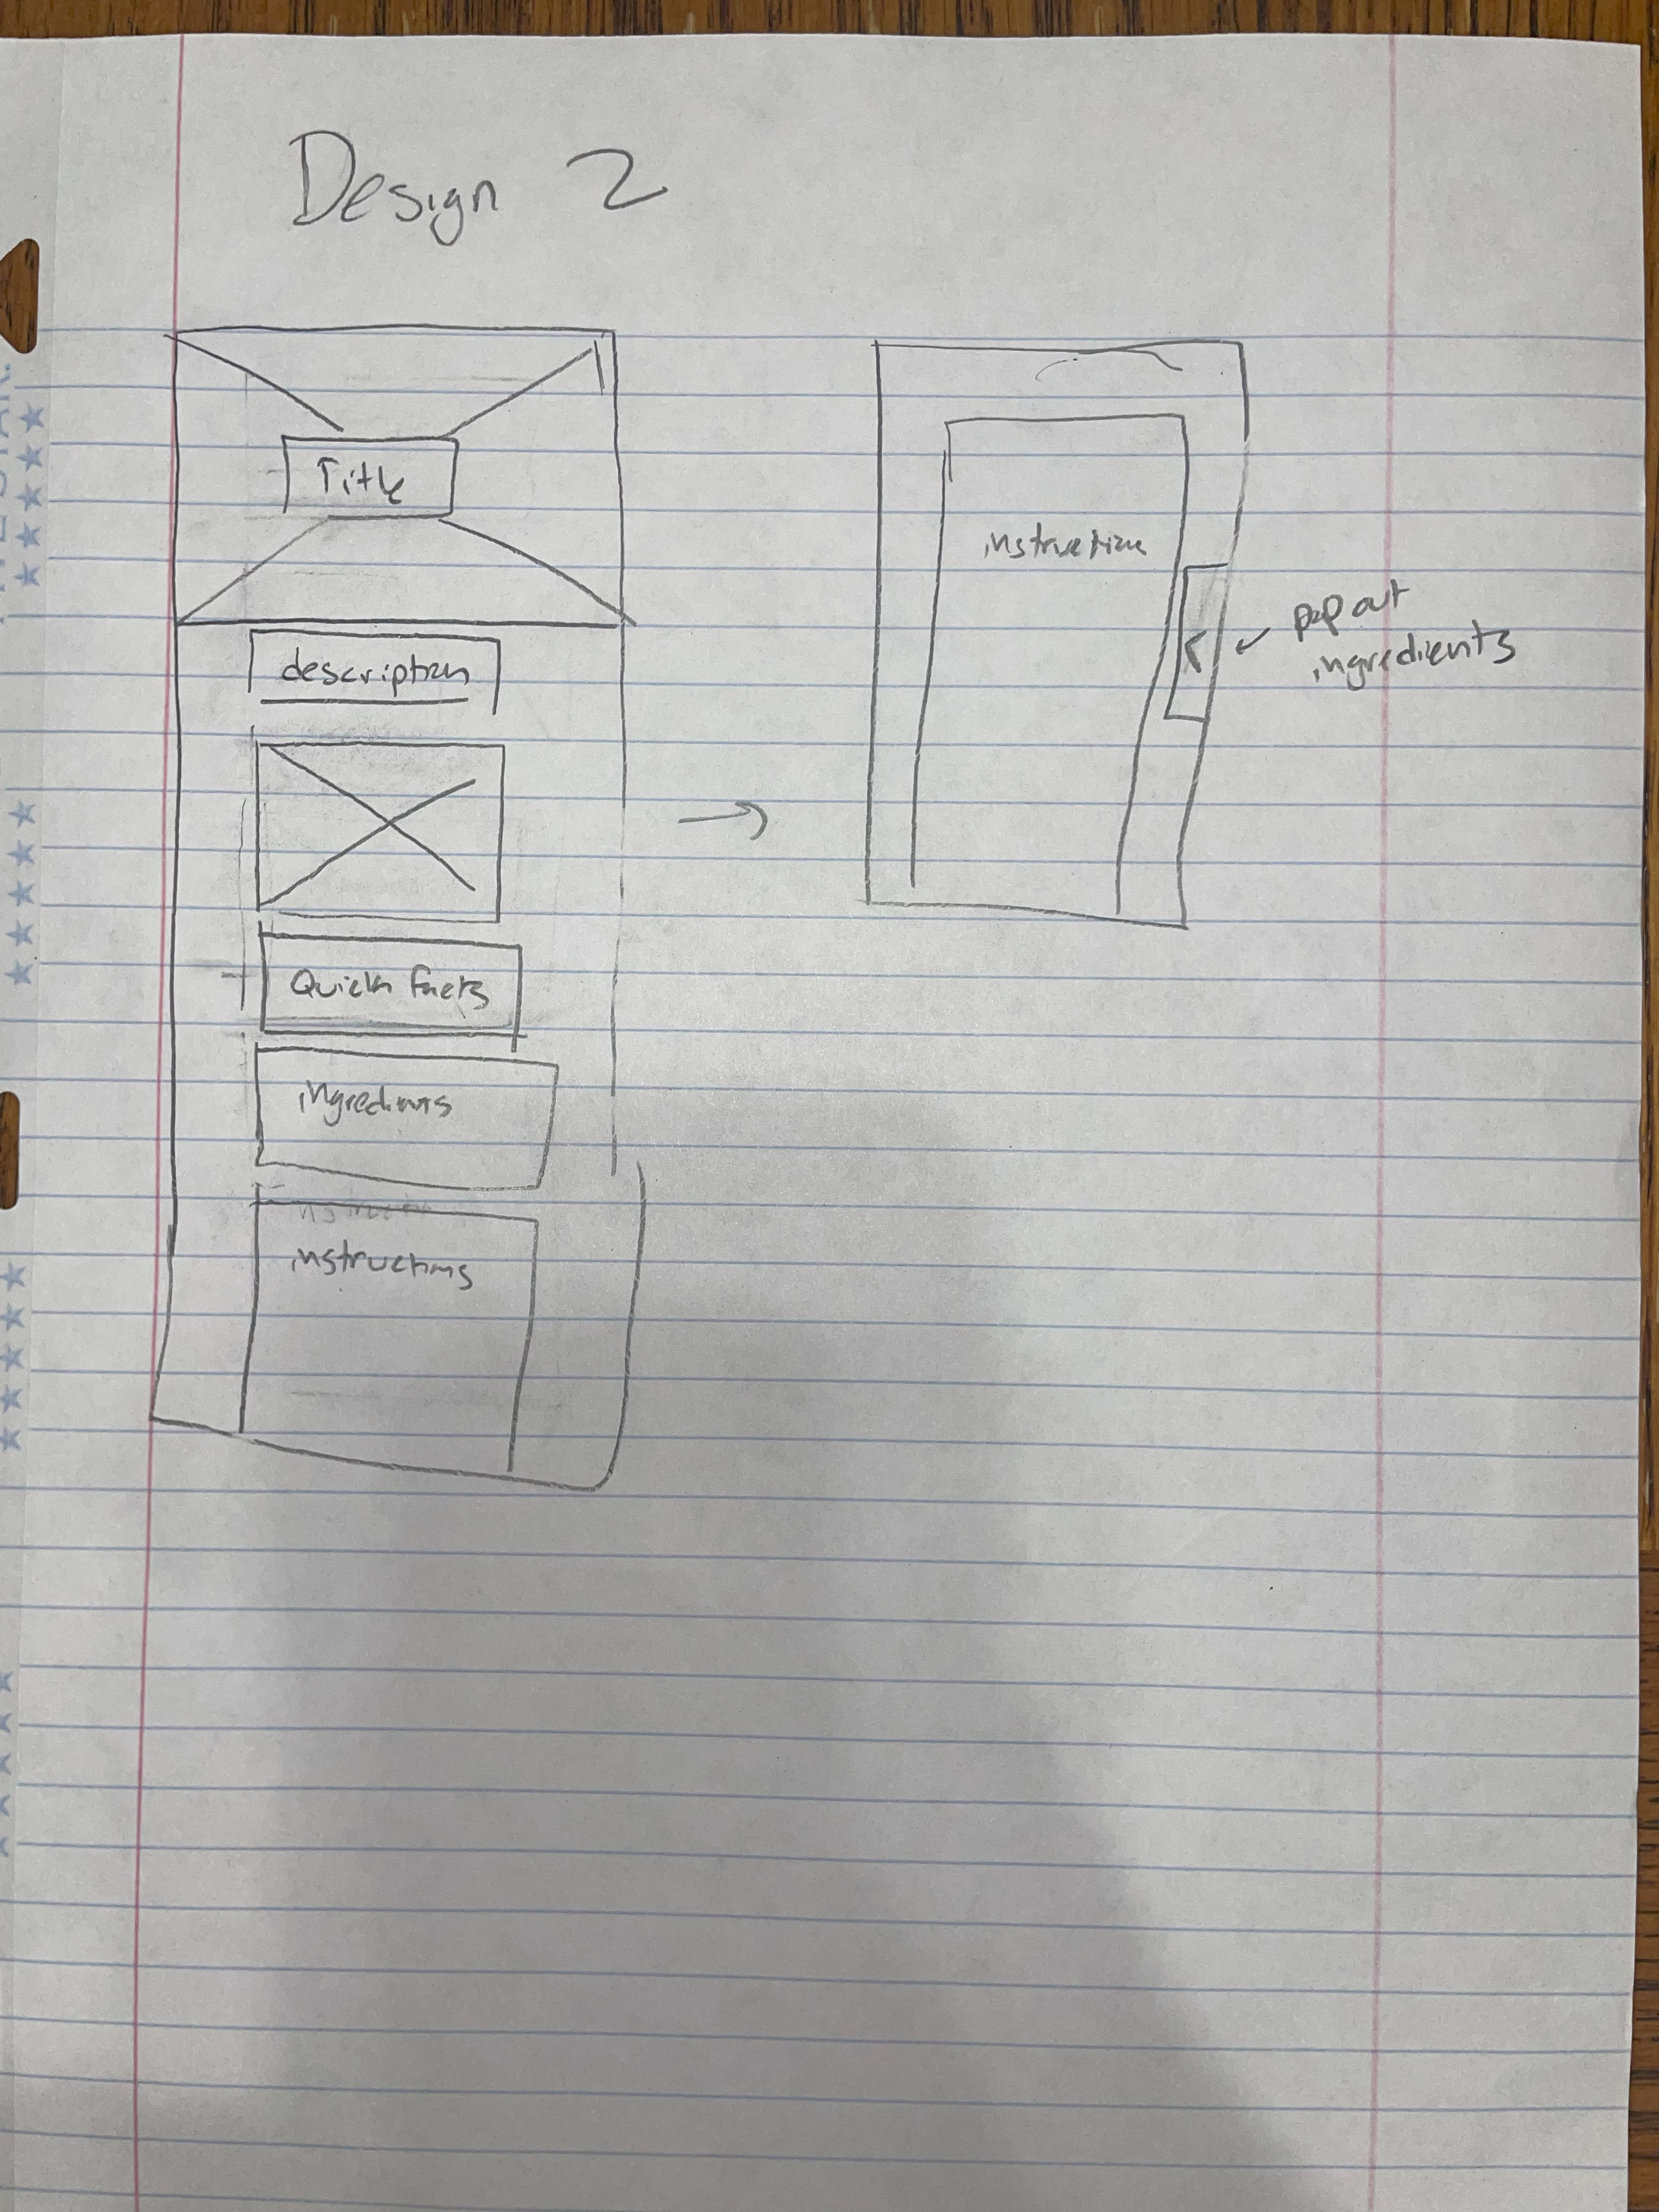 Design 2
Title
description
Quick facts
ingredients
instructions
instructions
pop out
ingredients